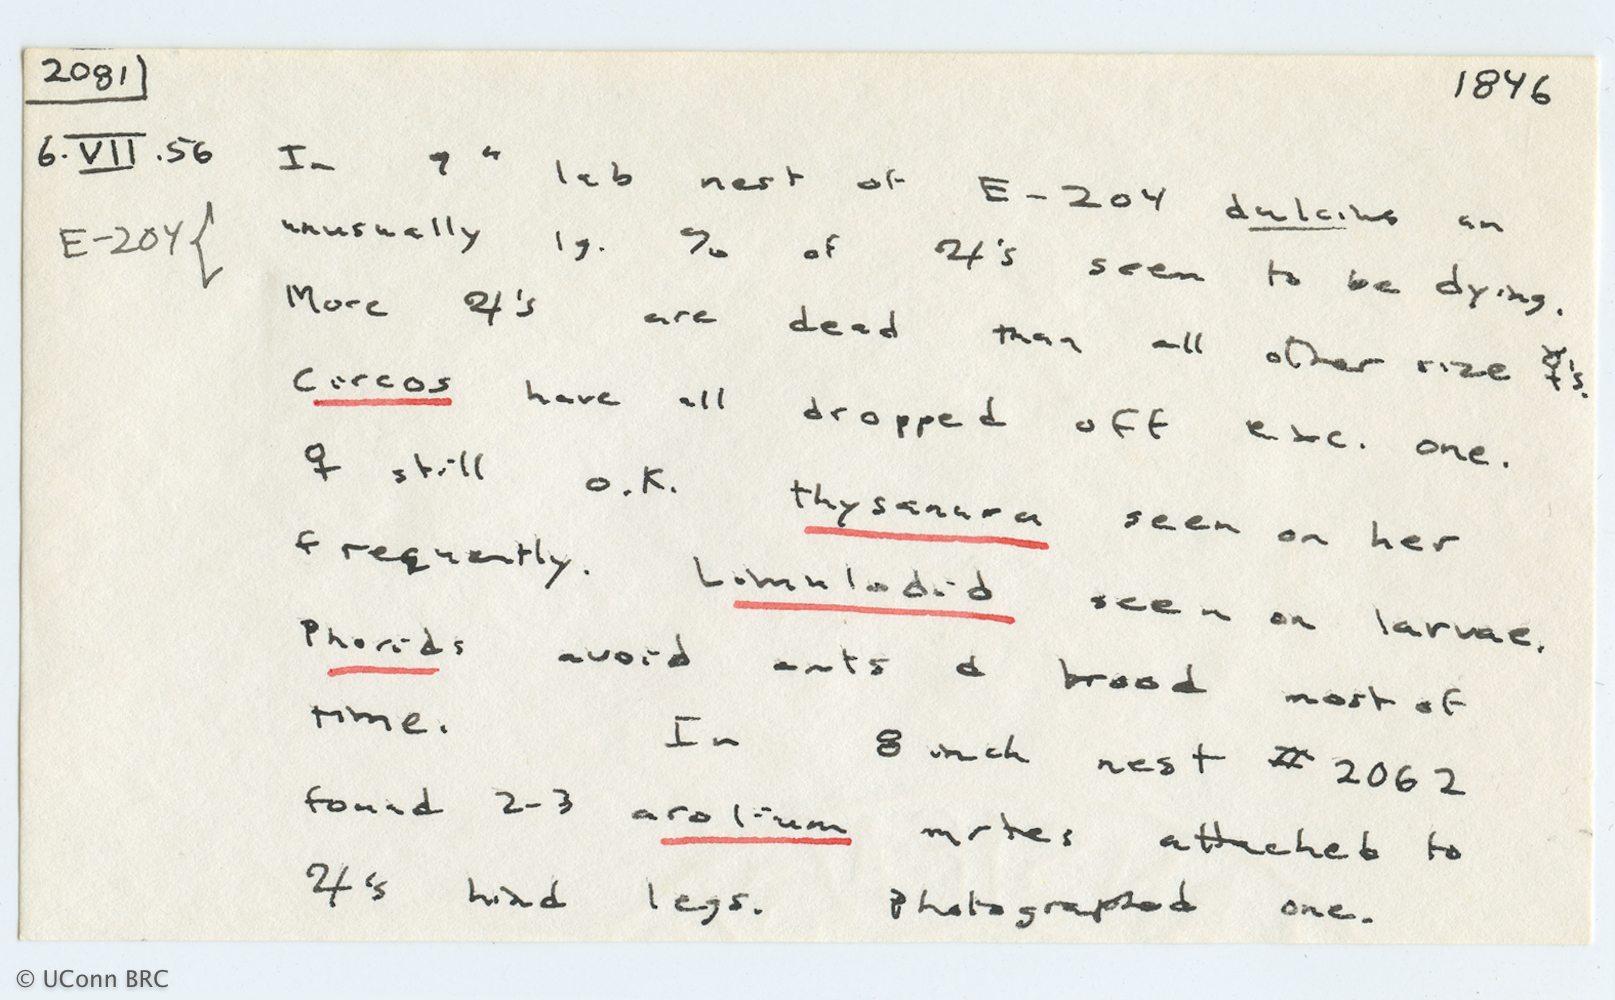 2081 1846
6.VII.56 In 9" lab nest of E-204 dulcius an
E-204 { unusually lg. % of ♃'s seem to be dying.
More ♃'s are dead than all other size ☿'s.
Circos have all dropped off exc. one.
♀ still o.k. thysanura seen on her
frequently. Limulodid seen on larvae.
Phorids avoid ants & brood most of
time. In 8 inch nest # 2062
found 2-3 arolium mites attached to
♃'s hind legs. Photographed one.
© UConn BRC